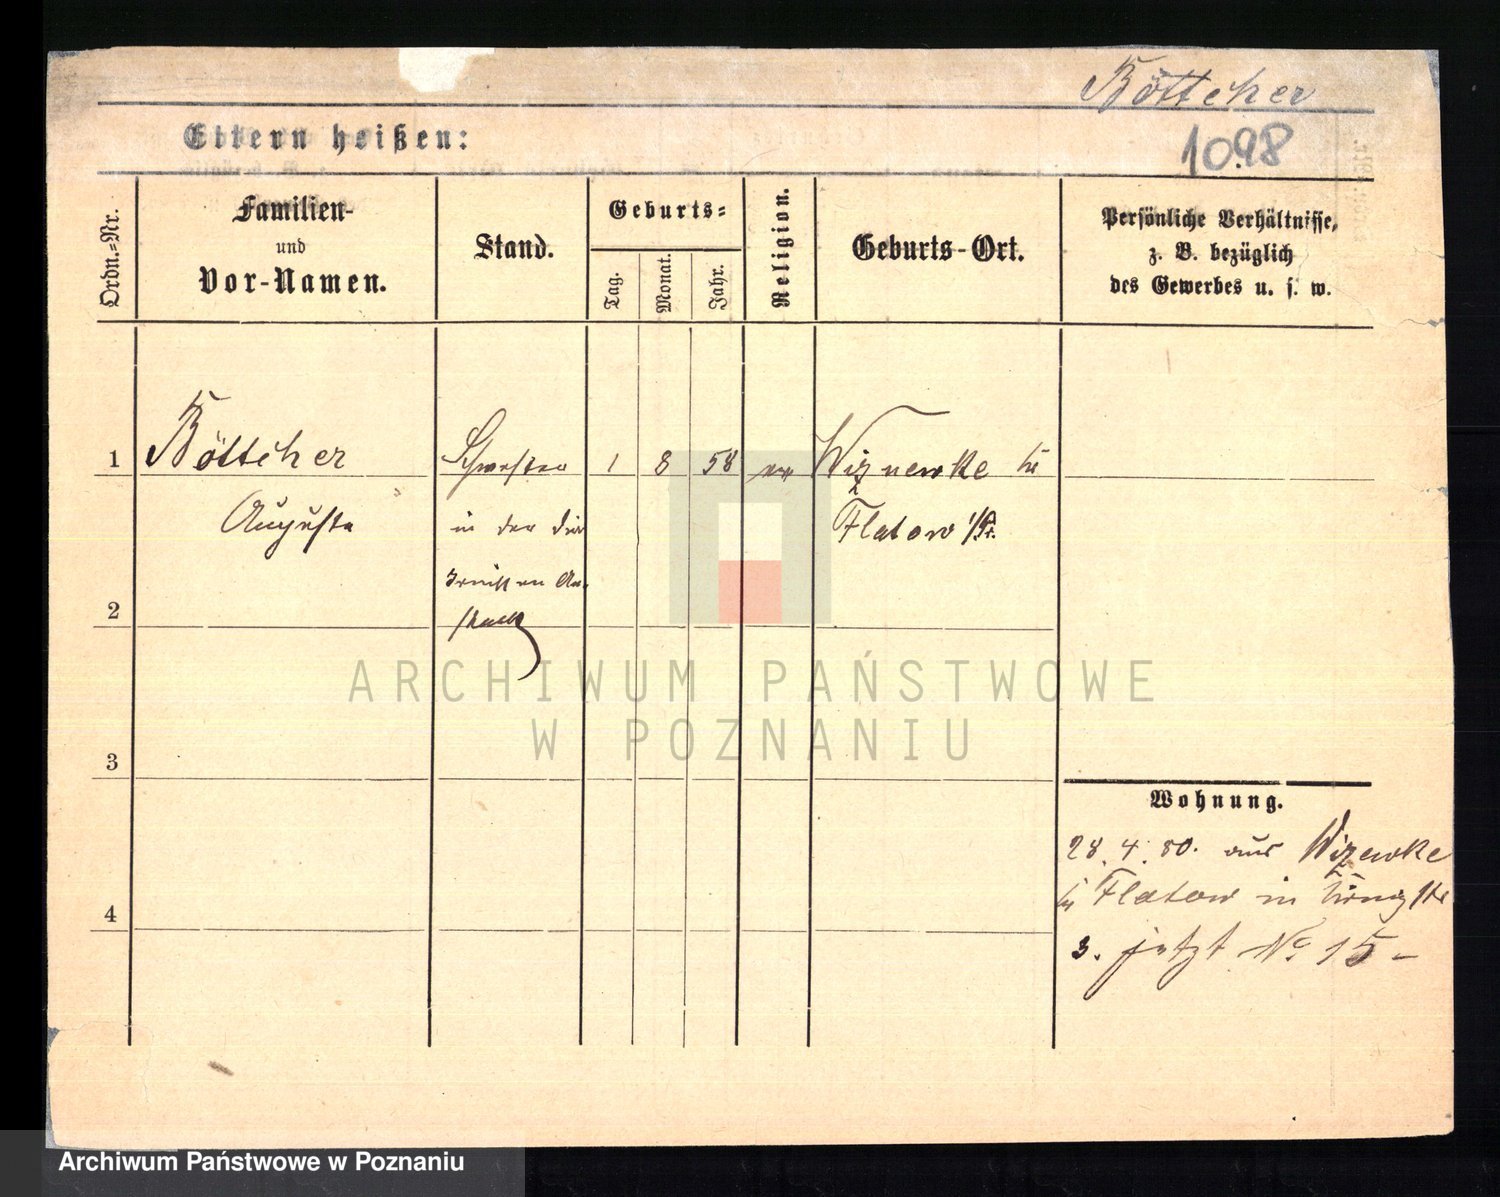 Böttcher
1098
Eltern heißen:
Ordn.-Nr.
Familien-
und
Vor-Namen.
Stand.
Geburts-
Tag.
Monat.
Jahr.
Religion.
Geburts-Ort.
Persönliche Verhältnisse,
z. B. bezüglich
des Gewerbes u. s. w.
1 Böttcher Schwester 1 8 58 ev Wiznewke bei
Auguste in der Dia Flatow
konissen An-
2 stalt
ARCHIWUM PAŃSTWOWE
W POZNANIU
3
Wohnung.
28. 4. 80. aus
bei Flatow in
4
3. jetzt No 15 -
Archiwum Państwowe w Poznaniu